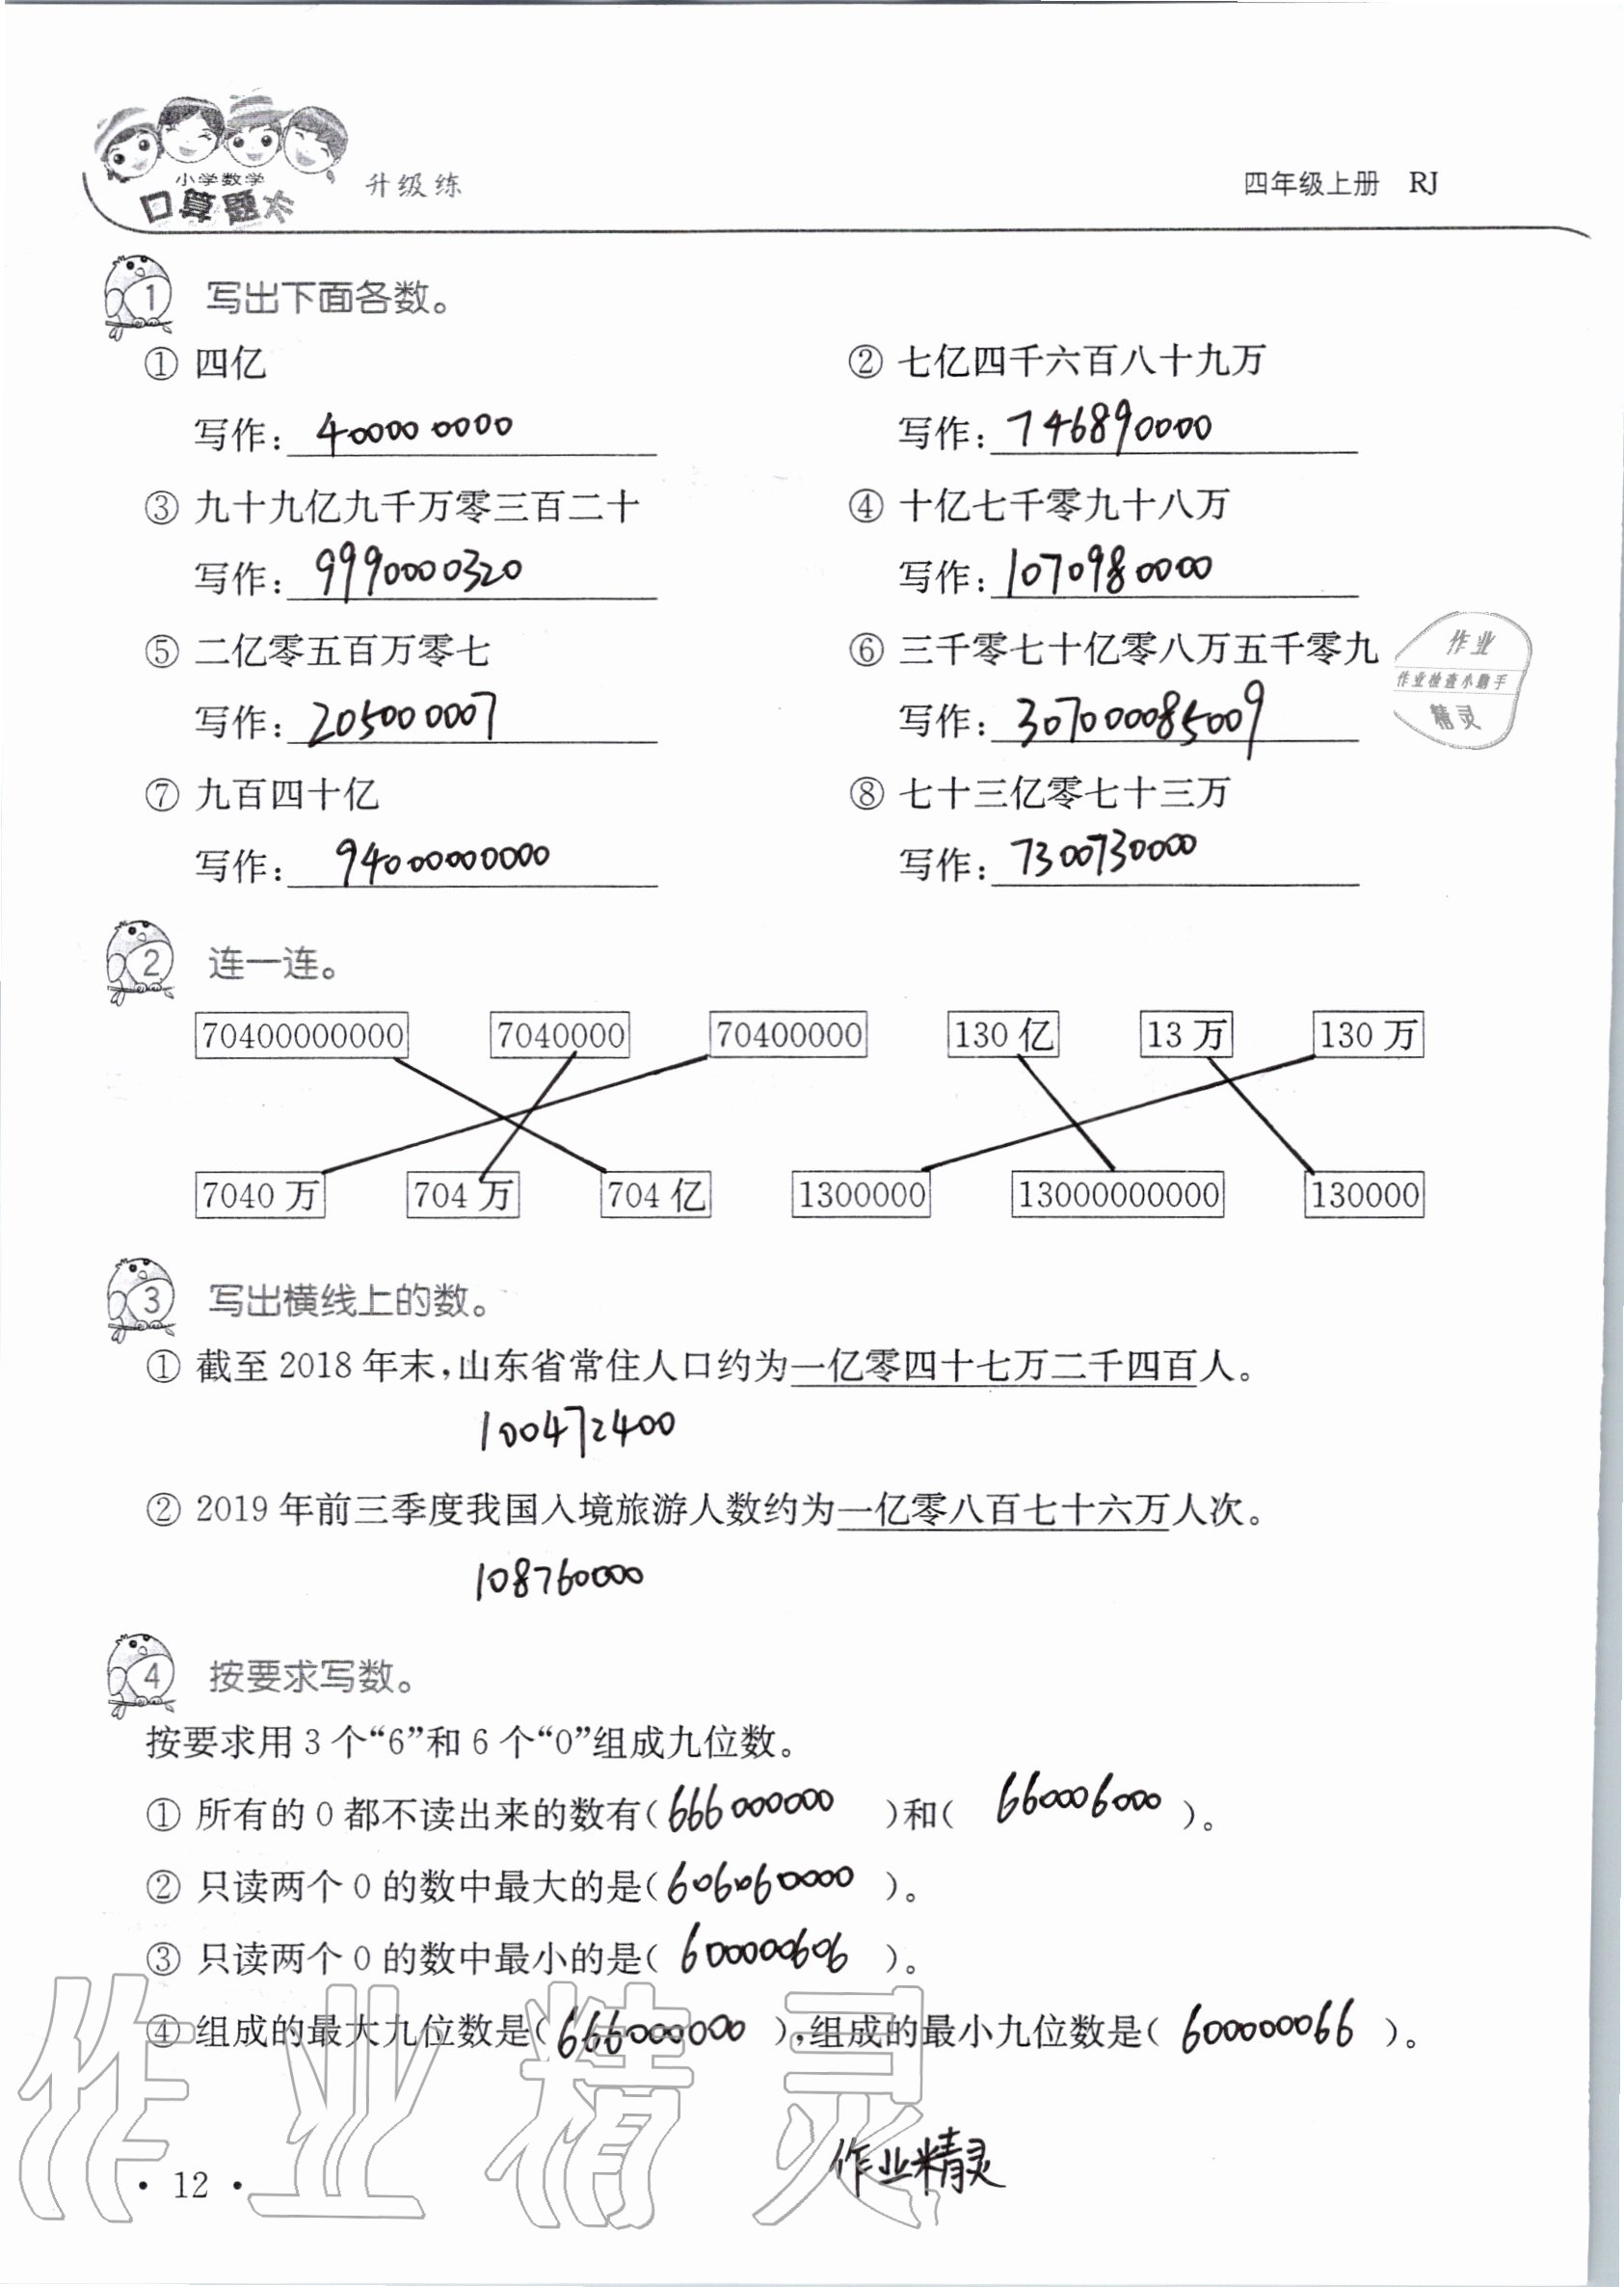 小学数学
口算题本 升级练 四年级上册 RJ
1 写出下面各数。
① 四亿 ② 七亿四千六百八十九万
写作: 400000000 写作: 746890000
③ 九十九亿九千万零三百二十 ④ 十亿七千零九十八万
写作: 9990000320 写作: 1070980000
⑤ 二亿零五百万零七 ⑥ 三千零七十亿零八万五千零九
写作: 205000007 写作: 307000085009
⑦ 九百四十亿 ⑧ 七十三亿零七十三万
写作: 94000000000 写作: 7300730000
作业
作业检查小助手
精灵
2 连一连。
70400000000 7040000 70400000 130 亿 13 万 130 万
7040 万 704 万 704 亿 1300000 13000000000 130000
3 写出横线上的数。
① 截至 2018 年末,山东省常住人口约为一亿零四十七万二千四百人。
100472400
② 2019 年前三季度我国入境旅游人数约为一亿零八百七十六万人次。
108760000
4 按要求写数。
按要求用 3 个“6”和 6 个“0”组成九位数。
① 所有的 0 都不读出来的数有( 666000000 )和( 660006000 )。
② 只读两个 0 的数中最大的是( 606060000 )。
③ 只读两个 0 的数中最小的是( 600000606 )。
④ 组成的最大九位数是( 666000000 ),组成的最小九位数是( 600000066 )。
作业精灵
作业精灵
· 12 ·